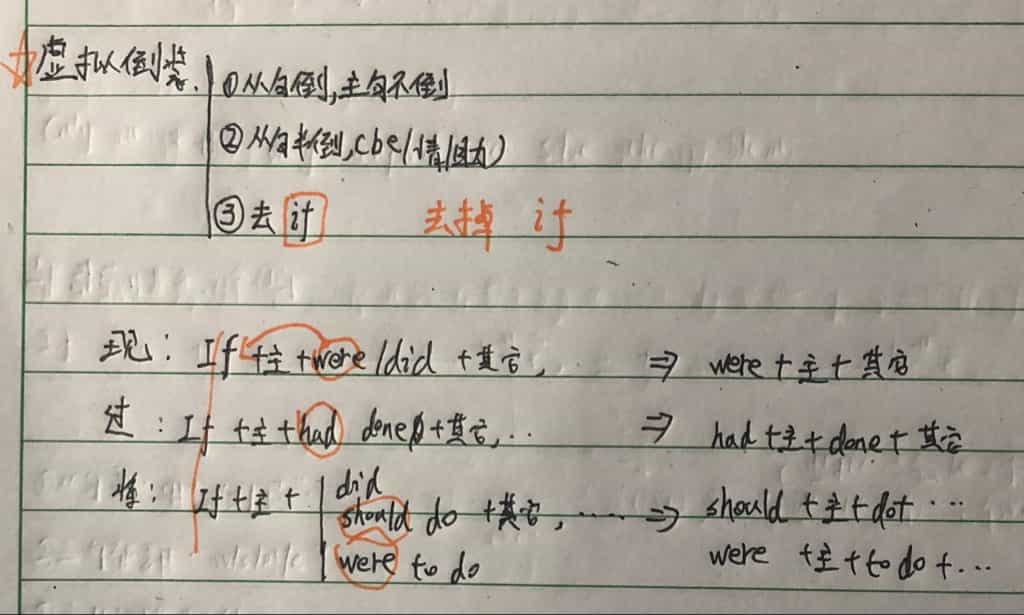 ☆虚拟倒装.
①从句倒,主句不倒
②从句半倒,(be/情/助)
③去 if 去掉 if
现: If +主+were/did +其它, ⇒ were+主+其它
过: If +主+had done+其它,.. ⇒ had+主+done+其它
将: If+主+ did
should do +其它, ...... ⇒ should +主+do+ ...
were to do were +主+to do+...